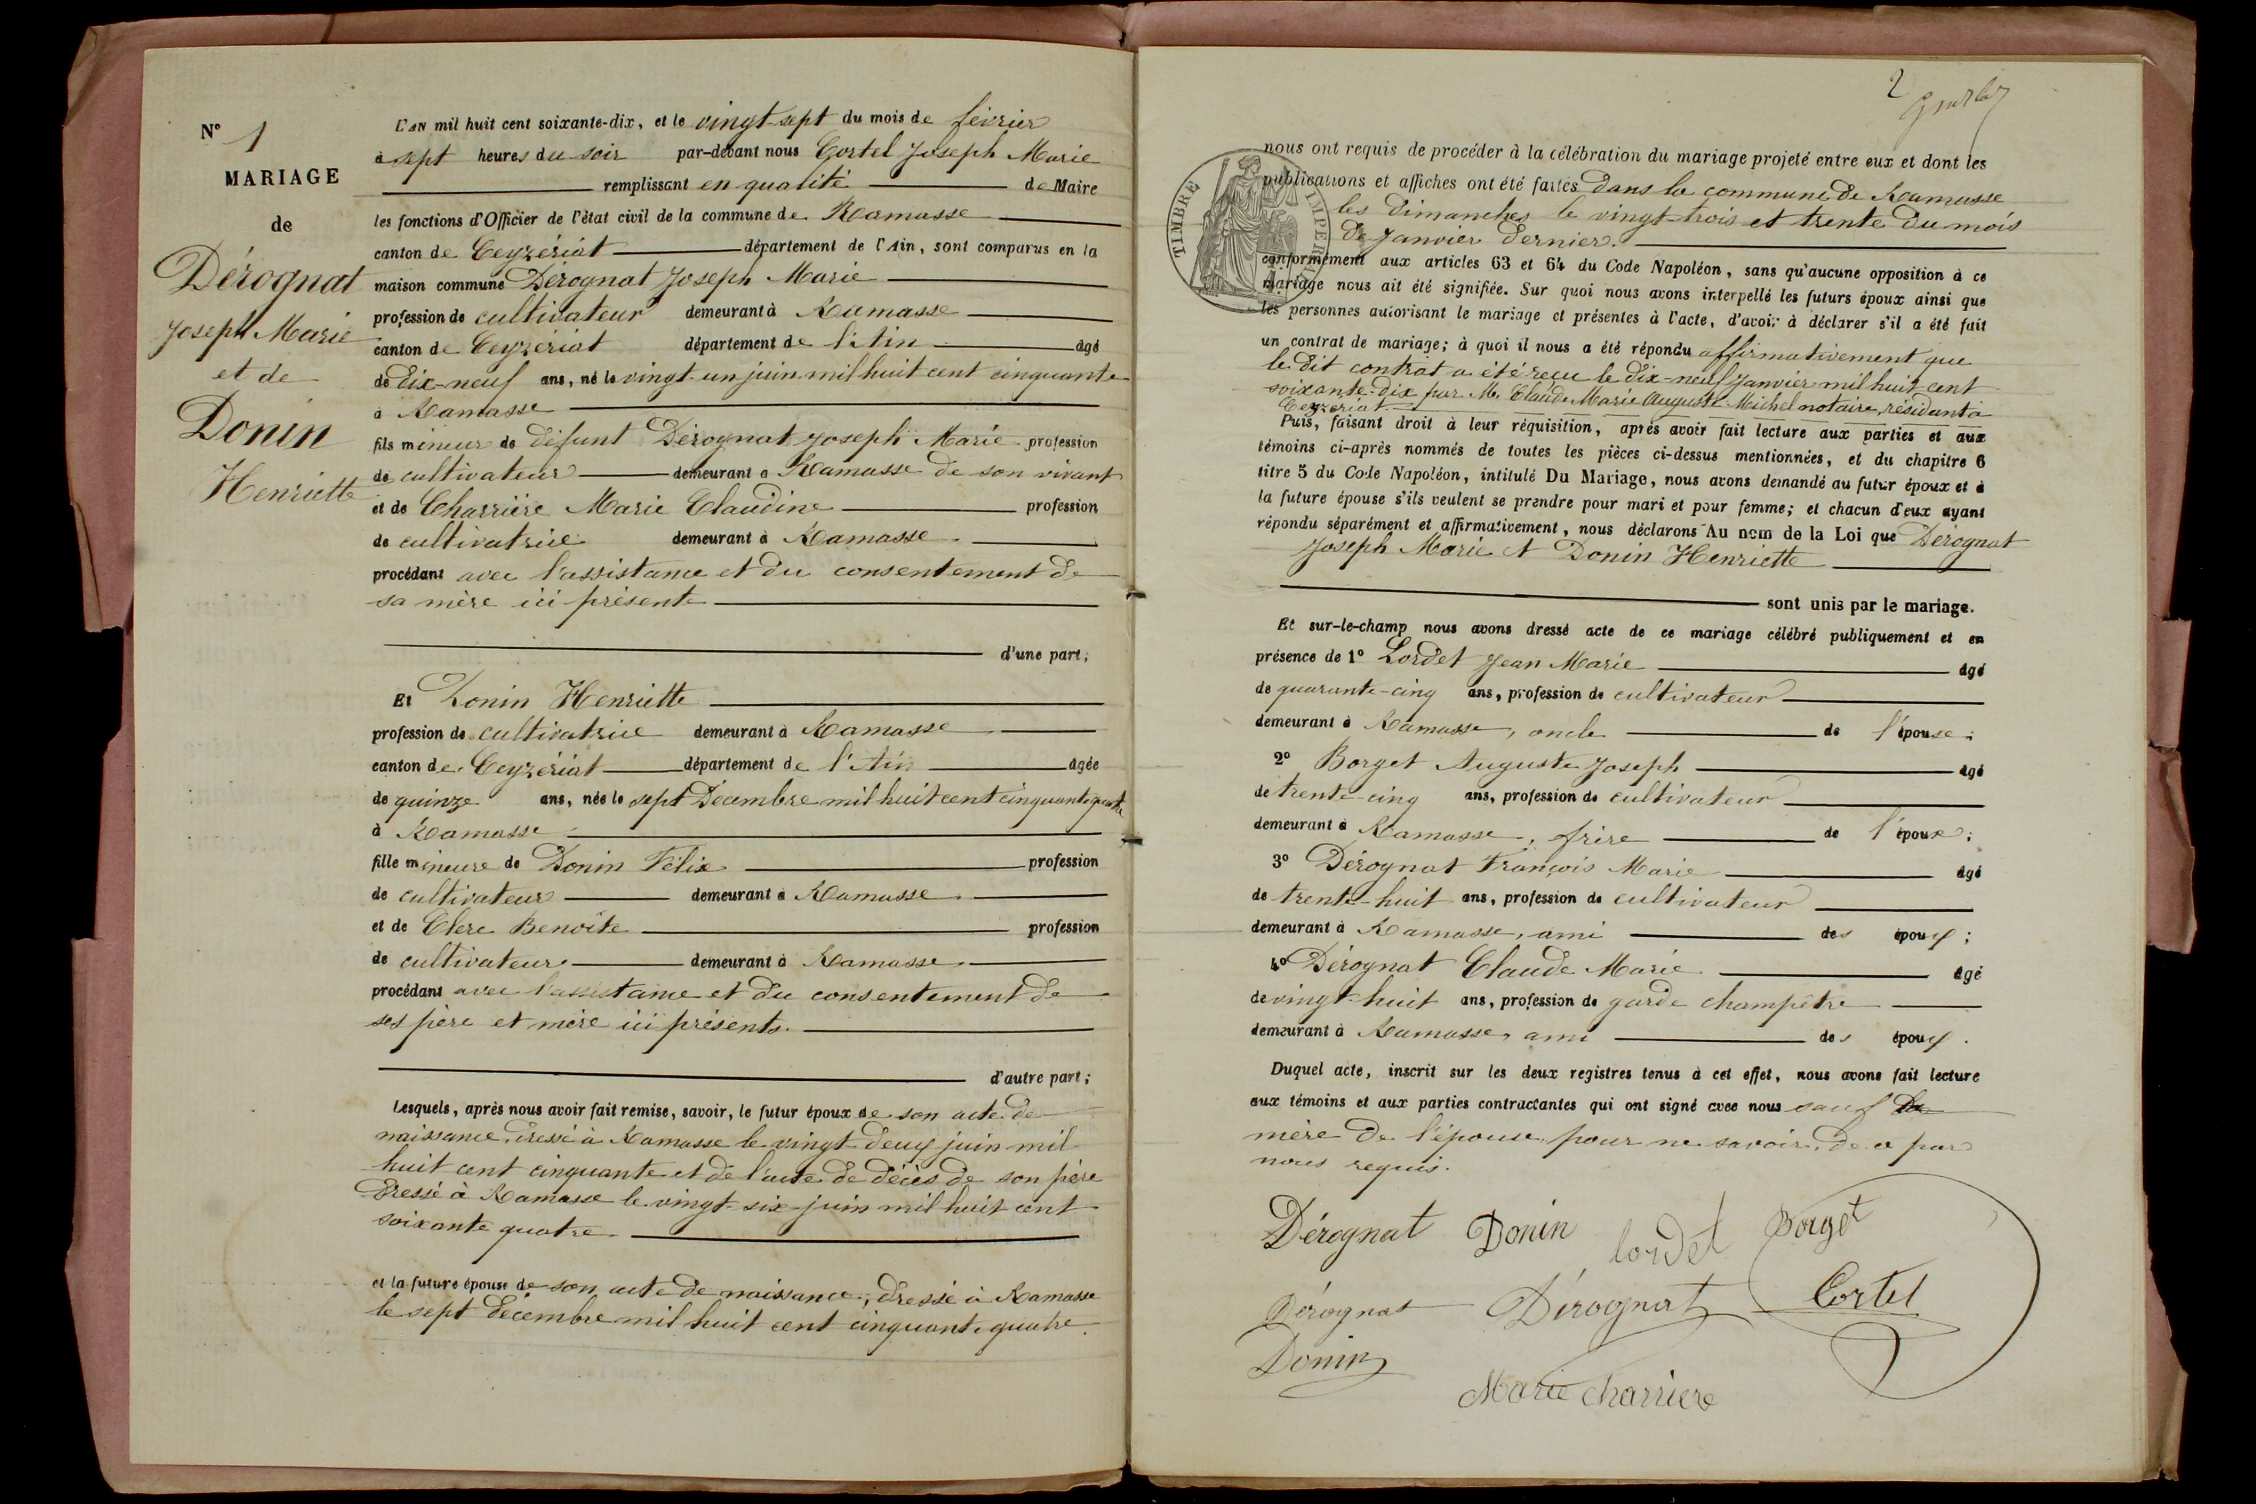 N° 1
MARIAGE
de
Dérognat
Joseph Marie
et de
Donin
Henriette
L'AN mil huit cent soixante-dix, et le vingt-sept du mois de février
à sept heures du soir par-devant nous Cortel Joseph Marie
remplissant en qualité de Maire
les fonctions d'Officier de l'état civil de la commune de Ramasse
canton de Ceyzériat département de l'Ain, sont comparus en la
maison commune Dérognat Joseph Marie
profession de cultivateur demeurant à Ramasse
canton de Ceyzériat département de l'Ain âgé
de dix-neuf ans, né le vingt-un juin mil huit cent cinquante
à Ramasse
fils mineur de défunt Dérognat Joseph Marie profession
de cultivateur demeurant à Ramasse de son vivant
et de Charrière Marie Claudine profession
de cultivatrice demeurant à Ramasse
procédant avec l'assistance et du consentement de
sa mère ici présente
d'une part;
Et Donin Henriette
profession de cultivatrice demeurant à Ramasse
canton de Ceyzériat département de l'Ain âgée
de quinze ans, née le sept Décembre mil huit cent cinquante quatre
à Ramasse
fille mineure de Donin Félix profession
de cultivateur demeurant à Ramasse
et de Clerc Benoîte profession
de cultivateur demeurant à Ramasse
procédant avec l'assistance et du consentement de
ses père et mère ici présents.
d'autre part;
Lesquels, après nous avoir fait remise, savoir, le futur époux de son acte de
naissance, dressé à Ramasse le vingt deux juin mil
huit cent cinquante et de l'acte de décès de son père
dressé à Ramasse le vingt-six juin mil huit cent
soixante quatre
et la future épouse de son acte de naissance, dressé à Ramasse
le sept décembre mil huit cent cinquante quatre.
2
TIMBRE IMPERIAL
nous ont requis de procéder à la célébration du mariage projeté entre eux et dont les
publications et affiches ont été faites dans la commune de Ramasse
les dimanches le vingt-trois et trente du mois
de janvier dernier.
conformément aux articles 63 et 64 du Code Napoléon, sans qu'aucune opposition à ce
mariage nous ait été signifiée. Sur quoi nous avons interpellé les futurs époux ainsi que
les personnes autorisant le mariage et présentes à l'acte, d'avoir à déclarer s'il a été fait
un contrat de mariage; à quoi il nous a été répondu affirmativement que
le dit contrat a été reçu le dix-neuf janvier mil huit cent
soixante-dix par Me Claude Marie Auguste Michel notaire, résidant à
Ceyzériat
Puis, faisant droit à leur réquisition, après avoir fait lecture aux parties et aux
témoins ci-après nommés de toutes les pièces ci-dessus mentionnées, et du chapitre 6
titre 5 du Code Napoléon, intitulé Du Mariage, nous avons demandé au futur époux et à
la future épouse s'ils veulent se prendre pour mari et pour femme; et chacun d'eux ayant
répondu séparément et affirmativement, nous déclarons Au nom de la Loi que Dérognat
Joseph Marie et Donin Henriette
sont unis par le mariage.
Et sur-le-champ nous avons dressé acte de ce mariage célébré publiquement et en
présence de 1° Lordet Jean Marie âgé
de quarante-cinq ans, profession de cultivateur
demeurant à Ramasse, oncle de l'épouse;
2° Borget Auguste Joseph âgé
de trente-cinq ans, profession de cultivateur
demeurant à Ramasse, frère de l'époux;
3° Dérognat François Marie âgé
de trente-huit ans, profession de cultivateur
demeurant à Ramasse, ami des époux;
4° Dérognat Claude Marie âgé
de vingt-huit ans, profession de garde champêtre
demeurant à Ramasse, ami des époux.
Duquel acte, inscrit sur les deux registres tenus à cet effet, nous avons fait lecture
aux témoins et aux parties contractantes qui ont signé avec nous sauf la
mère de l'épouse pour ne savoir, de ce par
nous requis.
Dérognat Donin lordet Borget
Dérognat Dérognat Cortel
Donin
Marie charriere